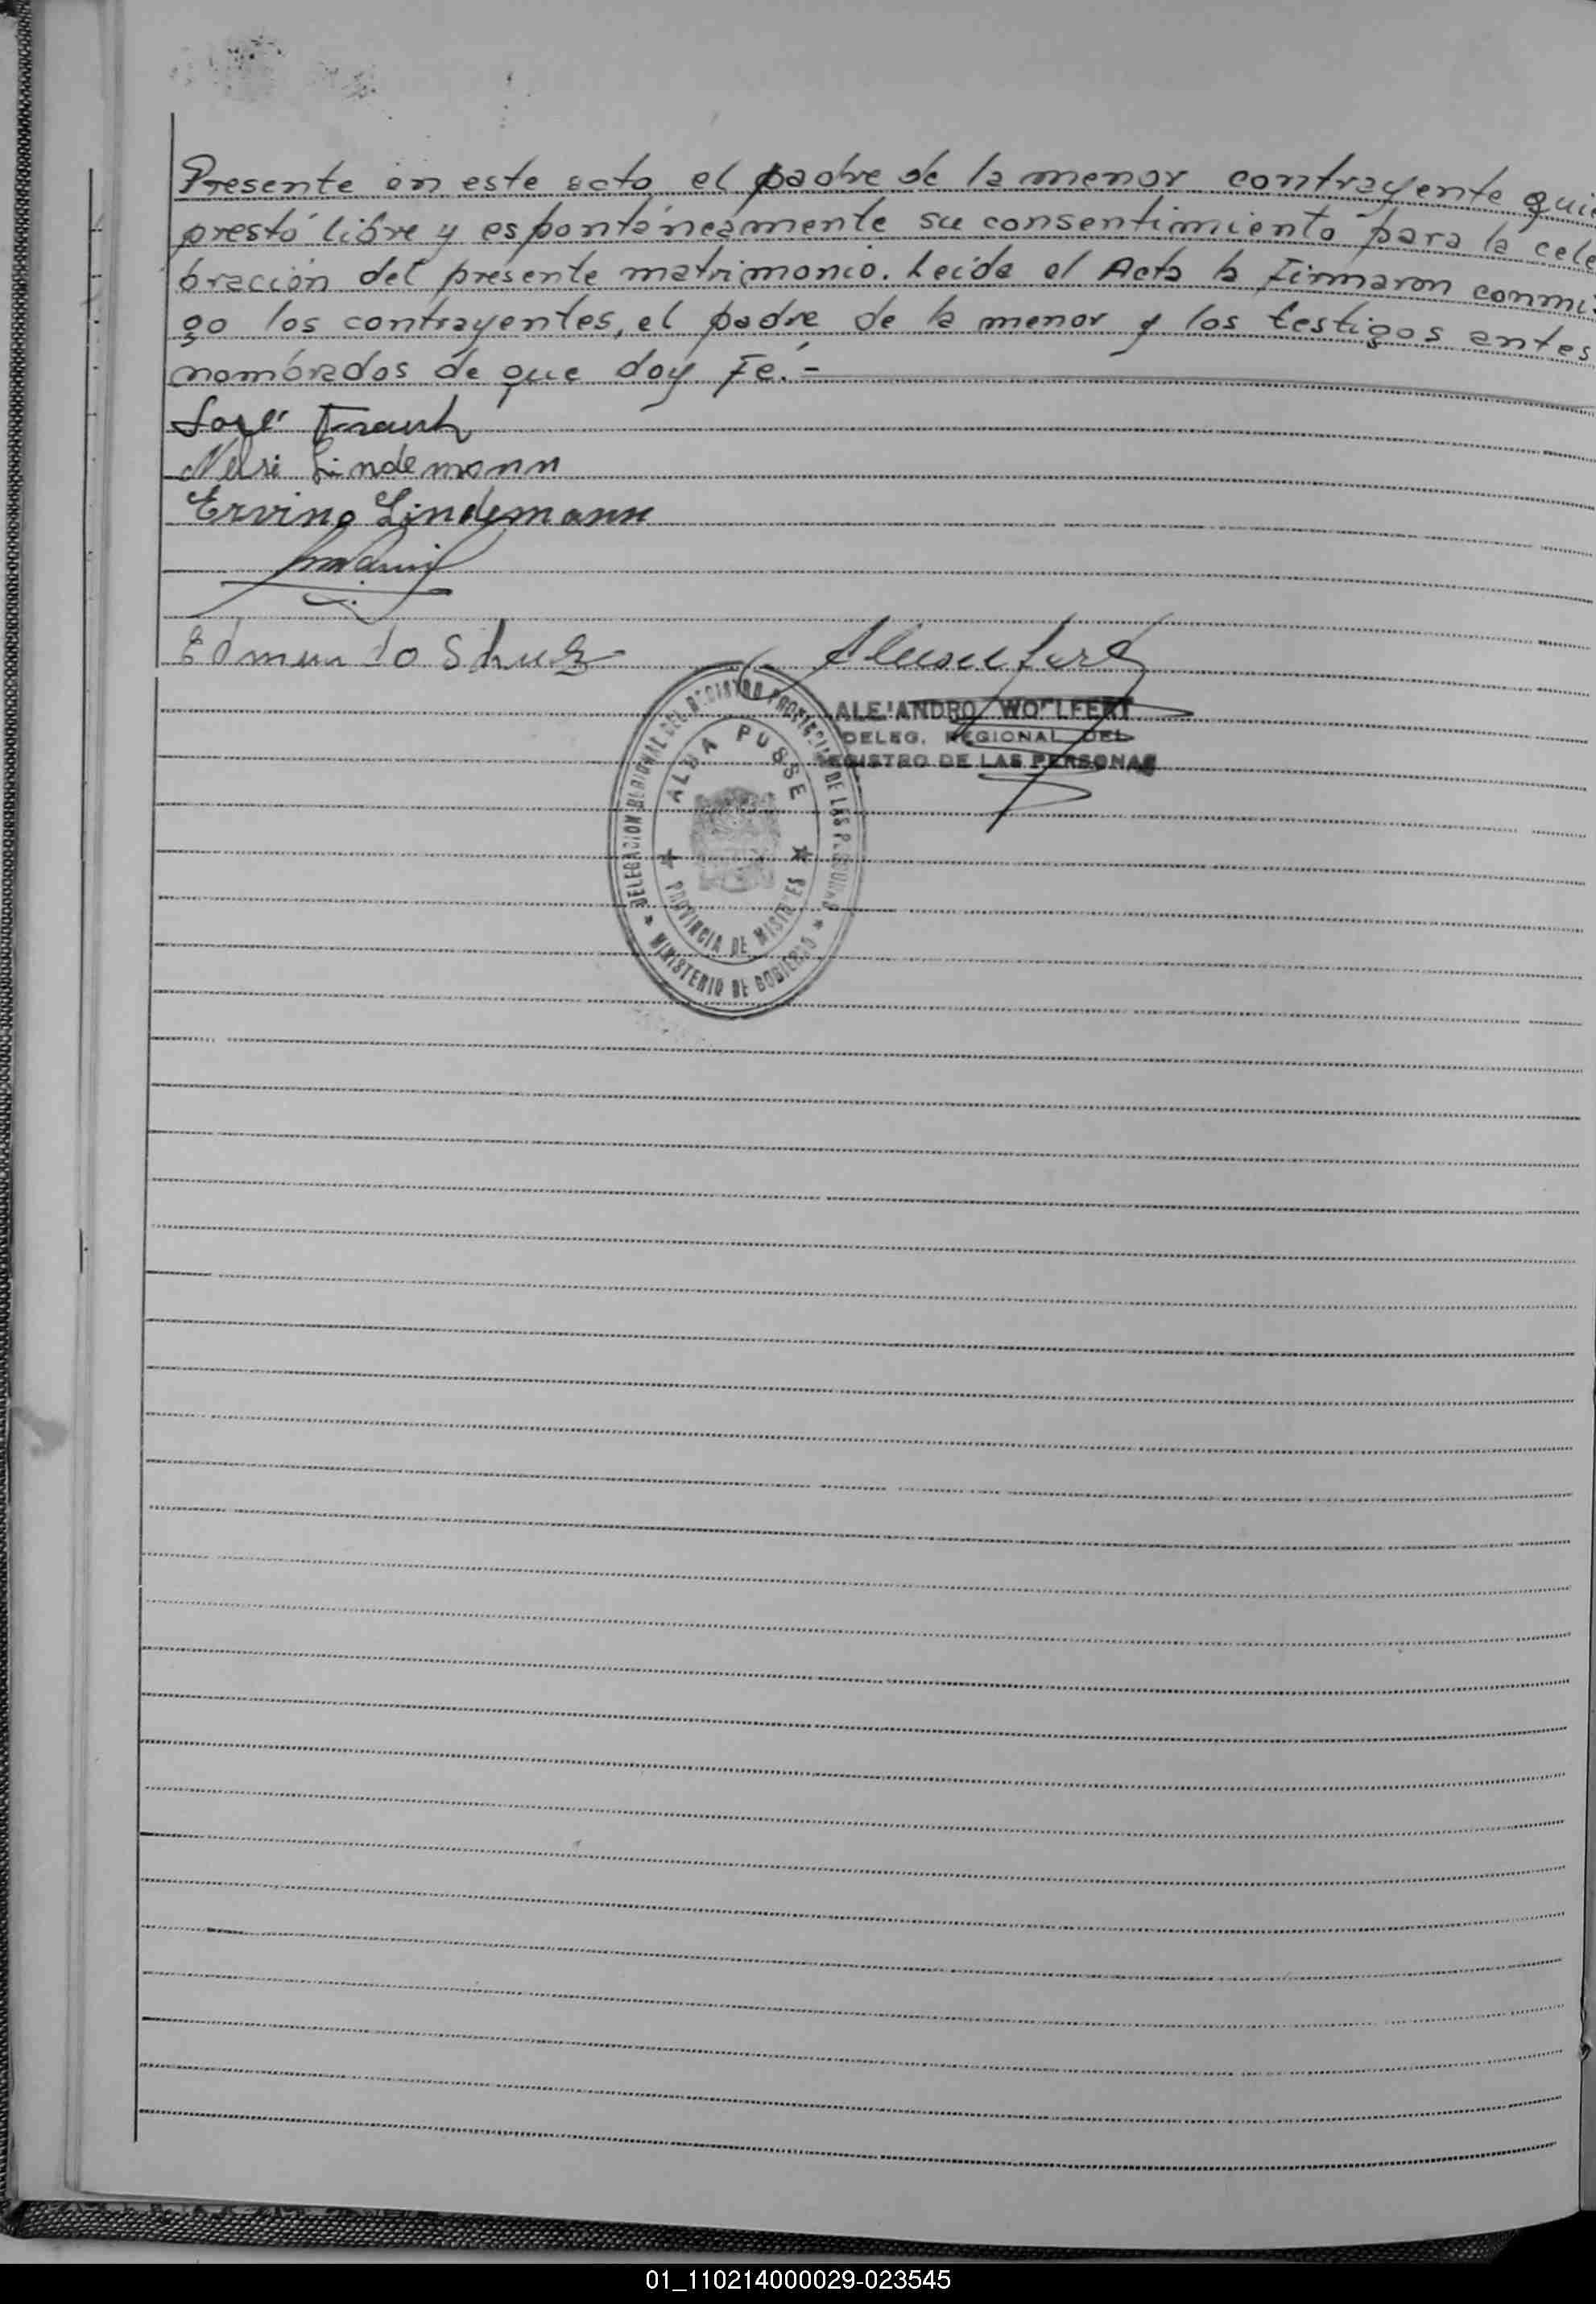 Presente en este acto el padre de la menor contrayente quie
prestó libre y espontáneamente su consentimiento para la cele
bración del presente matrimonio. Leida el Acta la Firmaron conmi-
go los contrayentes, el padre de la menor y los testigos antes
nombrados de que doy Fe.-
José
Nelsi Lindemann
Ervino Lindemann
Edmundo Shulz
ALEJANDRO WOLLFERT
DELEG. REGIONAL DEL
REGISTRO DE LAS PERSONAS
DELEGACION REGIONAL DEL REGISTRO PROVINCIAL DE LAS PERSONAS
ALBA POSSE
PROVINCIA DE MISIONES
MINISTERIO DE GOBIERNO
01_110214000029-023545